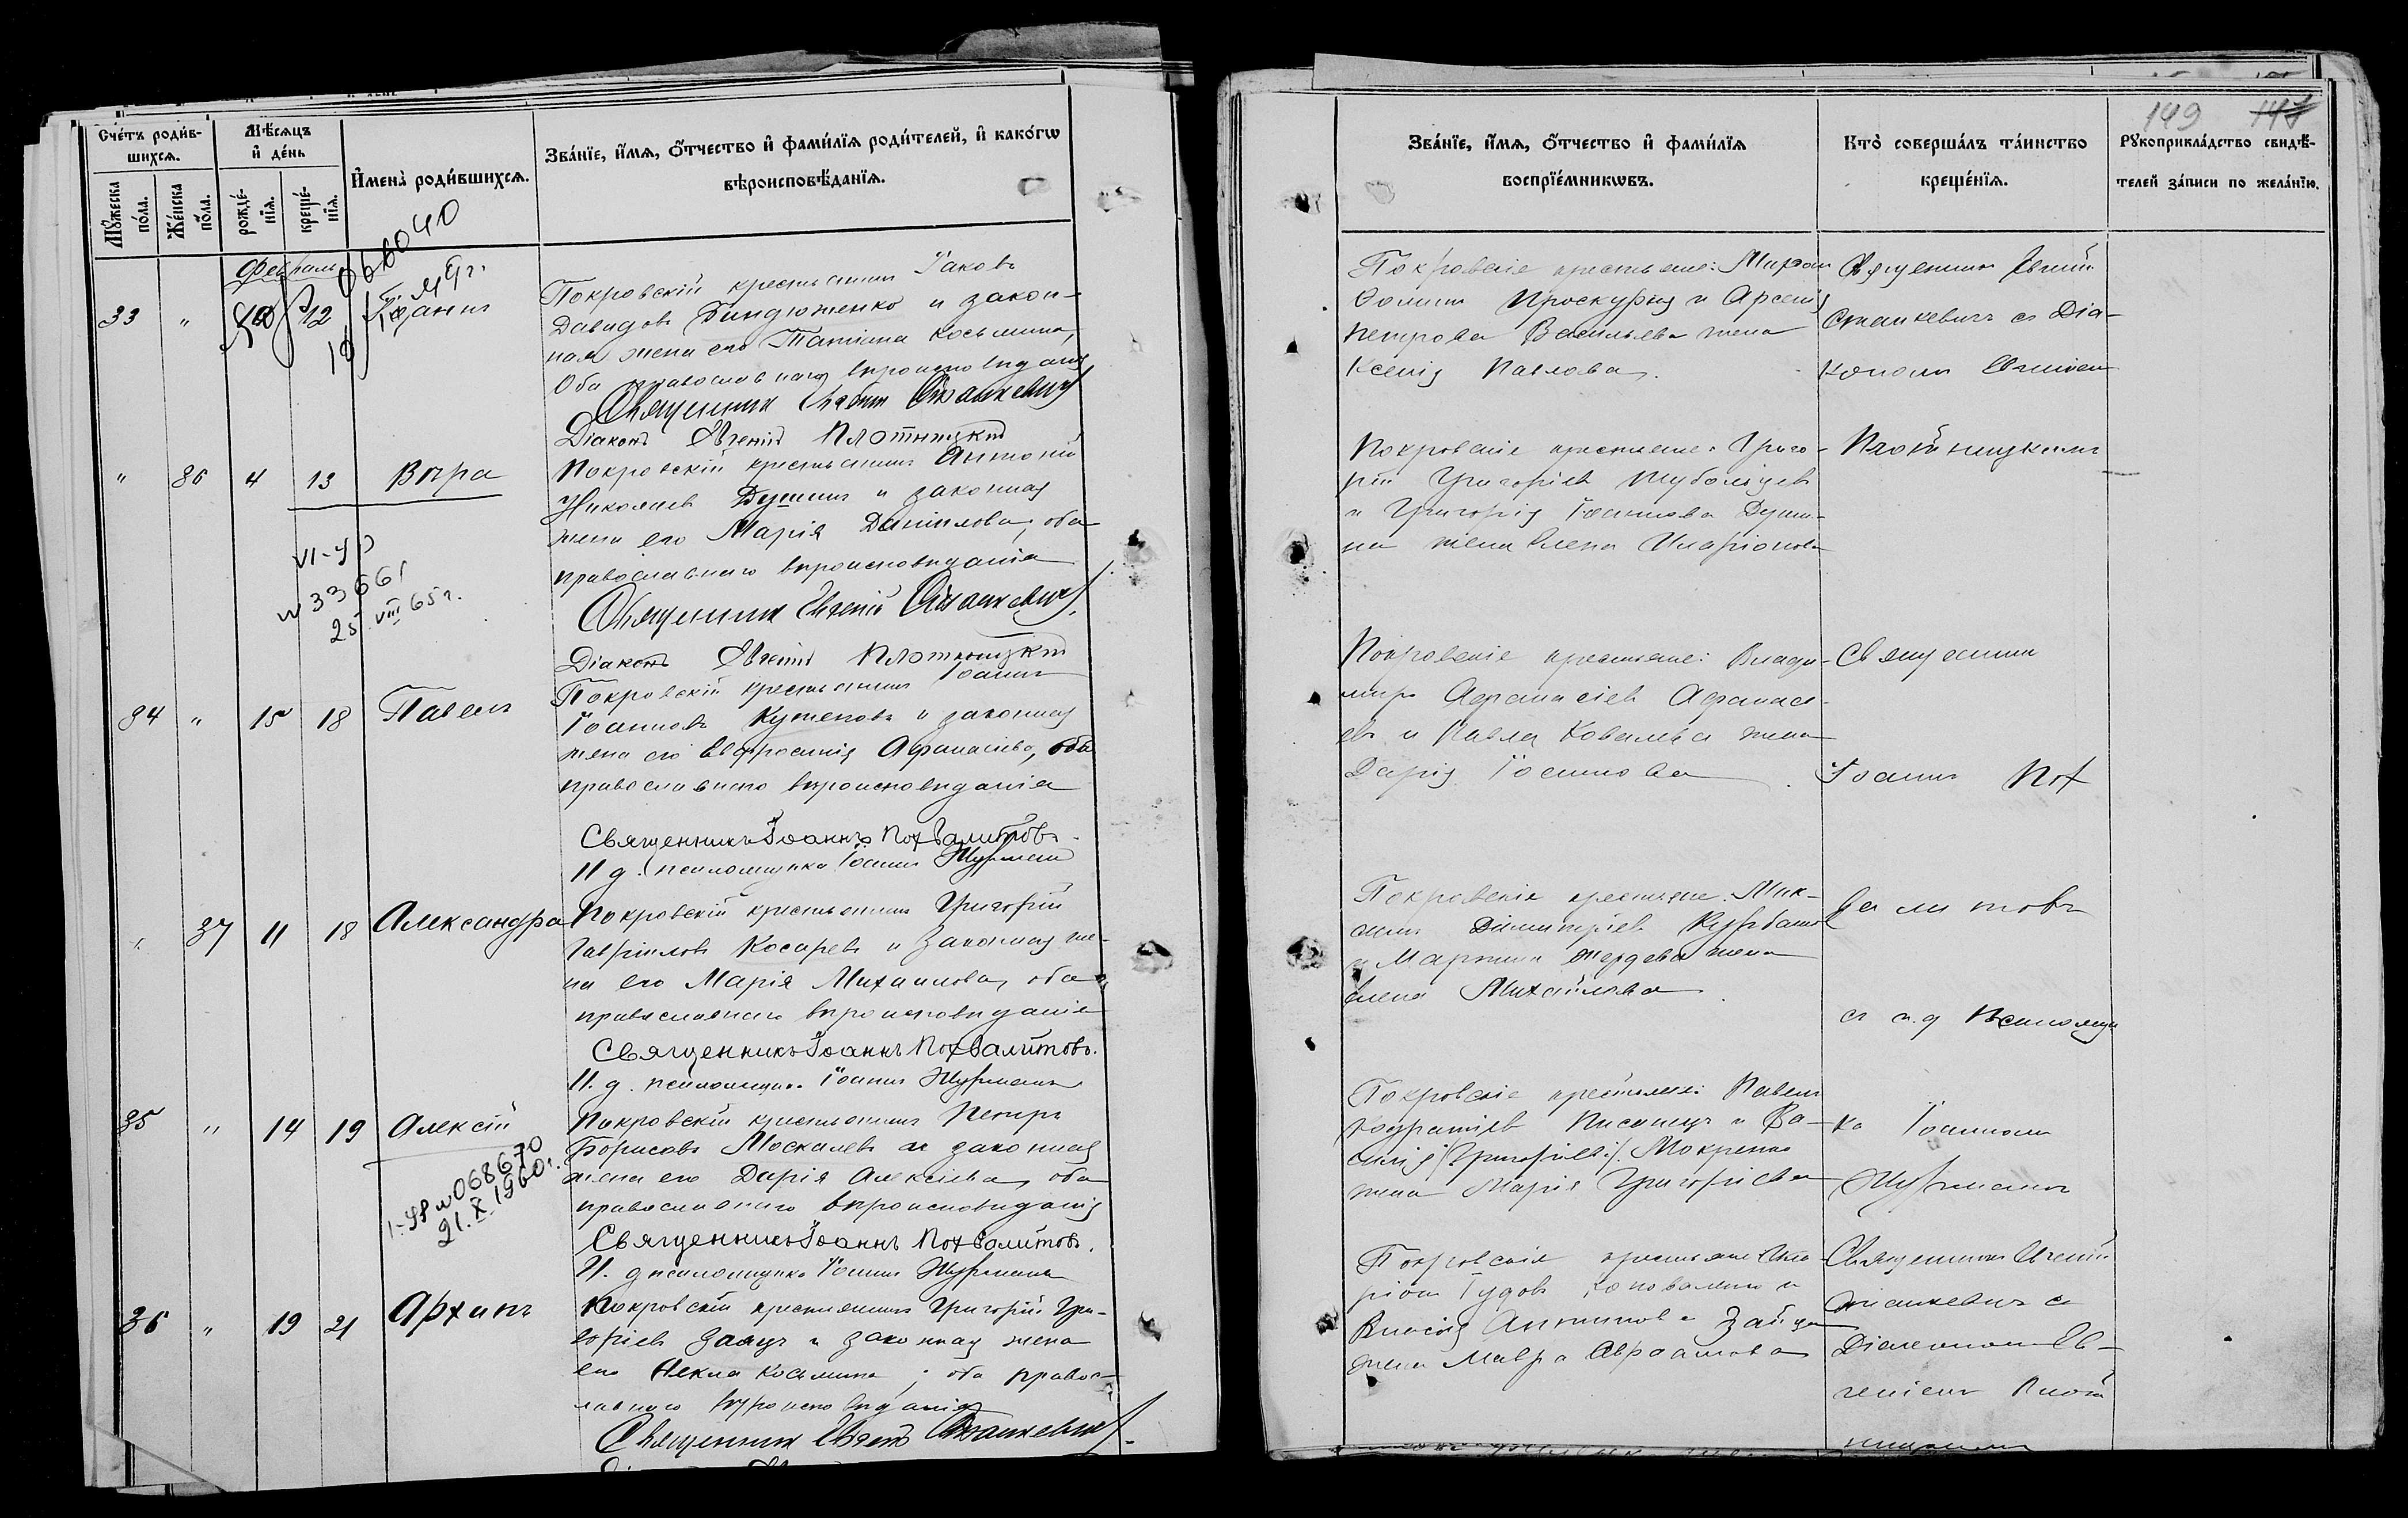 Счетъ родив-
шихся.
Мѣсяцъ
и день
Имена родившихся.
Званіе, имя, отчество и фамилія родителей, и какогѡ
вѣроисповѣданія.
Мужеска пола.
Женска пола.
рожде-
нія.
креще-
нія.
Февраль
33 " 12 Іоаннъ
Покровскій крестьянинъ Іаковъ
Давидовъ Биндюженко и закон-
ная жена его Татіана Косьмина,
оба православнаго вѣроисповѣданія
Священникъ Евгеній Станкевичъ
Діаконъ Евгеній Плотницкій
" 86 4 13 Вѣра
Покровскій крестьянинъ Антоній
Николаевъ Душинъ и законная
жена его Марія Даніилова, оба
православнаго вѣроисповѣданія
VI-УР
N 33661
25 VIII 65 г.
Священникъ Евгеній Станкевичъ
Діаконъ Евгеній Плотницкій
84 " 15 18 Павелъ
Покровскій крестьянинъ Іоаннъ
Іоанновъ Кутеповъ и законная
жена его Евфросинія Афанасіева, оба
православнаго вѣроисповѣданія
Священникъ Іоаннъ Похвалитовъ.
И. д. псаломщика Іоаннъ Шурманъ
" 87 11 18 Александра
Покровскій крестьянинъ Григорій
Гавріиловъ Косаревъ и законная же-
на его Марія Михаилова, оба
православнаго вѣроисповѣданія
Священникъ Іоаннъ Похвалитовъ.
И. д. псаломщика Іоаннъ Шурманъ
85 " 14 19 Алексій
Покровскій крестьянинъ Петръ
Борисовъ Москалевъ и законная
жена его Дарія Алексіева, оба
православнаго вѣроисповѣданія
N 068670
21.X.1960г.
Священникъ Іоаннъ Похвалитовъ.
И. д. псаломщика Іоаннъ Шурманъ
36 " 19 21 Архипъ
Покровскій крестьянинъ Григорій Гри-
горіевъ Заяцъ и законная жена
его Ѳекла Косьмина, оба правос-
лавнаго вѣроисповѣданія
Священникъ Евгеній Станкевичъ
149
Званіе, имя, отчество и фамилія
воспріемникѡвъ.
Кто совершалъ таинство
крещенія.
Рукоприкладство свидѣ-
телей записи по желанію.
Покровскіе крестьяне: Миронъ
Ѳоминъ Проскурня и Арсенія
Петрова Васильева жена
Ксенія Павлова.
Священникъ Евгеній
Станкевичъ съ Діа-
кономъ Евгеніемъ
Покровскіе крестьяне: Григо-
рій Григоріевъ
и Григорія Іоаннова Души-
на жена Елена Иларіонова
Плотницкимъ
Покровскіе крестьяне: Влади-
миръ Афанасіевъ Афанась-
евъ и Павла Ковалева жена
Дарія Іоаннова
Священникъ
Іоаннъ Пох
Покровскіе крестьяне: Мак-
симъ Димитріевъ Курбатовъ
и Мартина жена
Елена Михайлова
валитовъ
съ и.д. псаломщи
Покровскіе крестьяне: Павелъ
Кодратіевъ Писанецъ и Ва-
силія /Григоріева/ Мокренко
жена Марія Григоріева
ка Іоанномъ
Шурманомъ
Покровскіе крестьяне: Ила-
ріонъ Коноваленко и
Власія Антипова Зайца
жена Мавра Авраамова
Священникъ Евгеній
Станкевичъ съ
Діакономъ Ев-
геніемъ Плот
ницкимъ